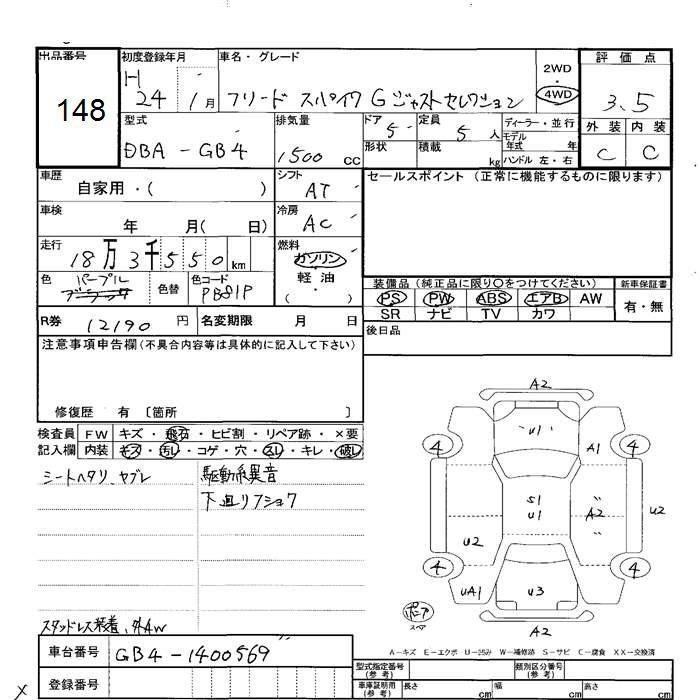 出品番号 初度登録年月 車名・グレード 2WD 評価点
148 H 24 1月 フリード スパイク G ジャストセレクション 4WD 3.5
型式 排気量 ドア 5 定員 5人 ディーラー・並行 外装 内装
DBA - GB4 1500 cc 形状 積載 kg モデル年式 年 C C
ハンドル 左・右
車歴 シフト セールスポイント(正常に機能するものに限ります)
自家用・( ) AT
車検 冷房
年 月( 日) AC
走行 燃料
18万3千550km ガソリン
色 パープル 色替 色コード 軽油
PB81P ・( )
装備品(純正品に限り○をつけてください) 新車保証書
PS PW ABS エアB AW 有・無
SR ナビ TV カワ
R券 12190 円 名変期限 月 日 後日品
注意事項申告欄(不具合内容等は具体的に記入して下さい)
修復歴 有 〔箇所 〕
検査員 FW キズ・飛石・ヒビ割・リペア跡・×要
記入欄 内装 キズ・汚レ・コゲ・穴・スレ・キレ・破レ
シートヘタリ、ヤブレ 駆動系異音
下廻リフショク
スタッドレス装着、外AW
A2
U1
4 A1 4
S1 〃
U1 A2 U2
U2 〃
4 4
UA1 U3
A2
ボニア
スペア
A-キズ E-エクボ U-凹み W-補修跡 S-サビ C-腐食 XX-交換済
車台番号 GB4-1400569
登録番号
型式指定番号(参考) 類別区分番号(参考)
車庫証明用(参考) 長さ cm 幅 cm 高さ cm
X